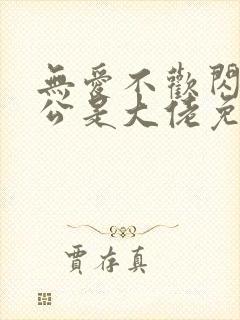 無愛不歡閃
公是大佬免
賈存真